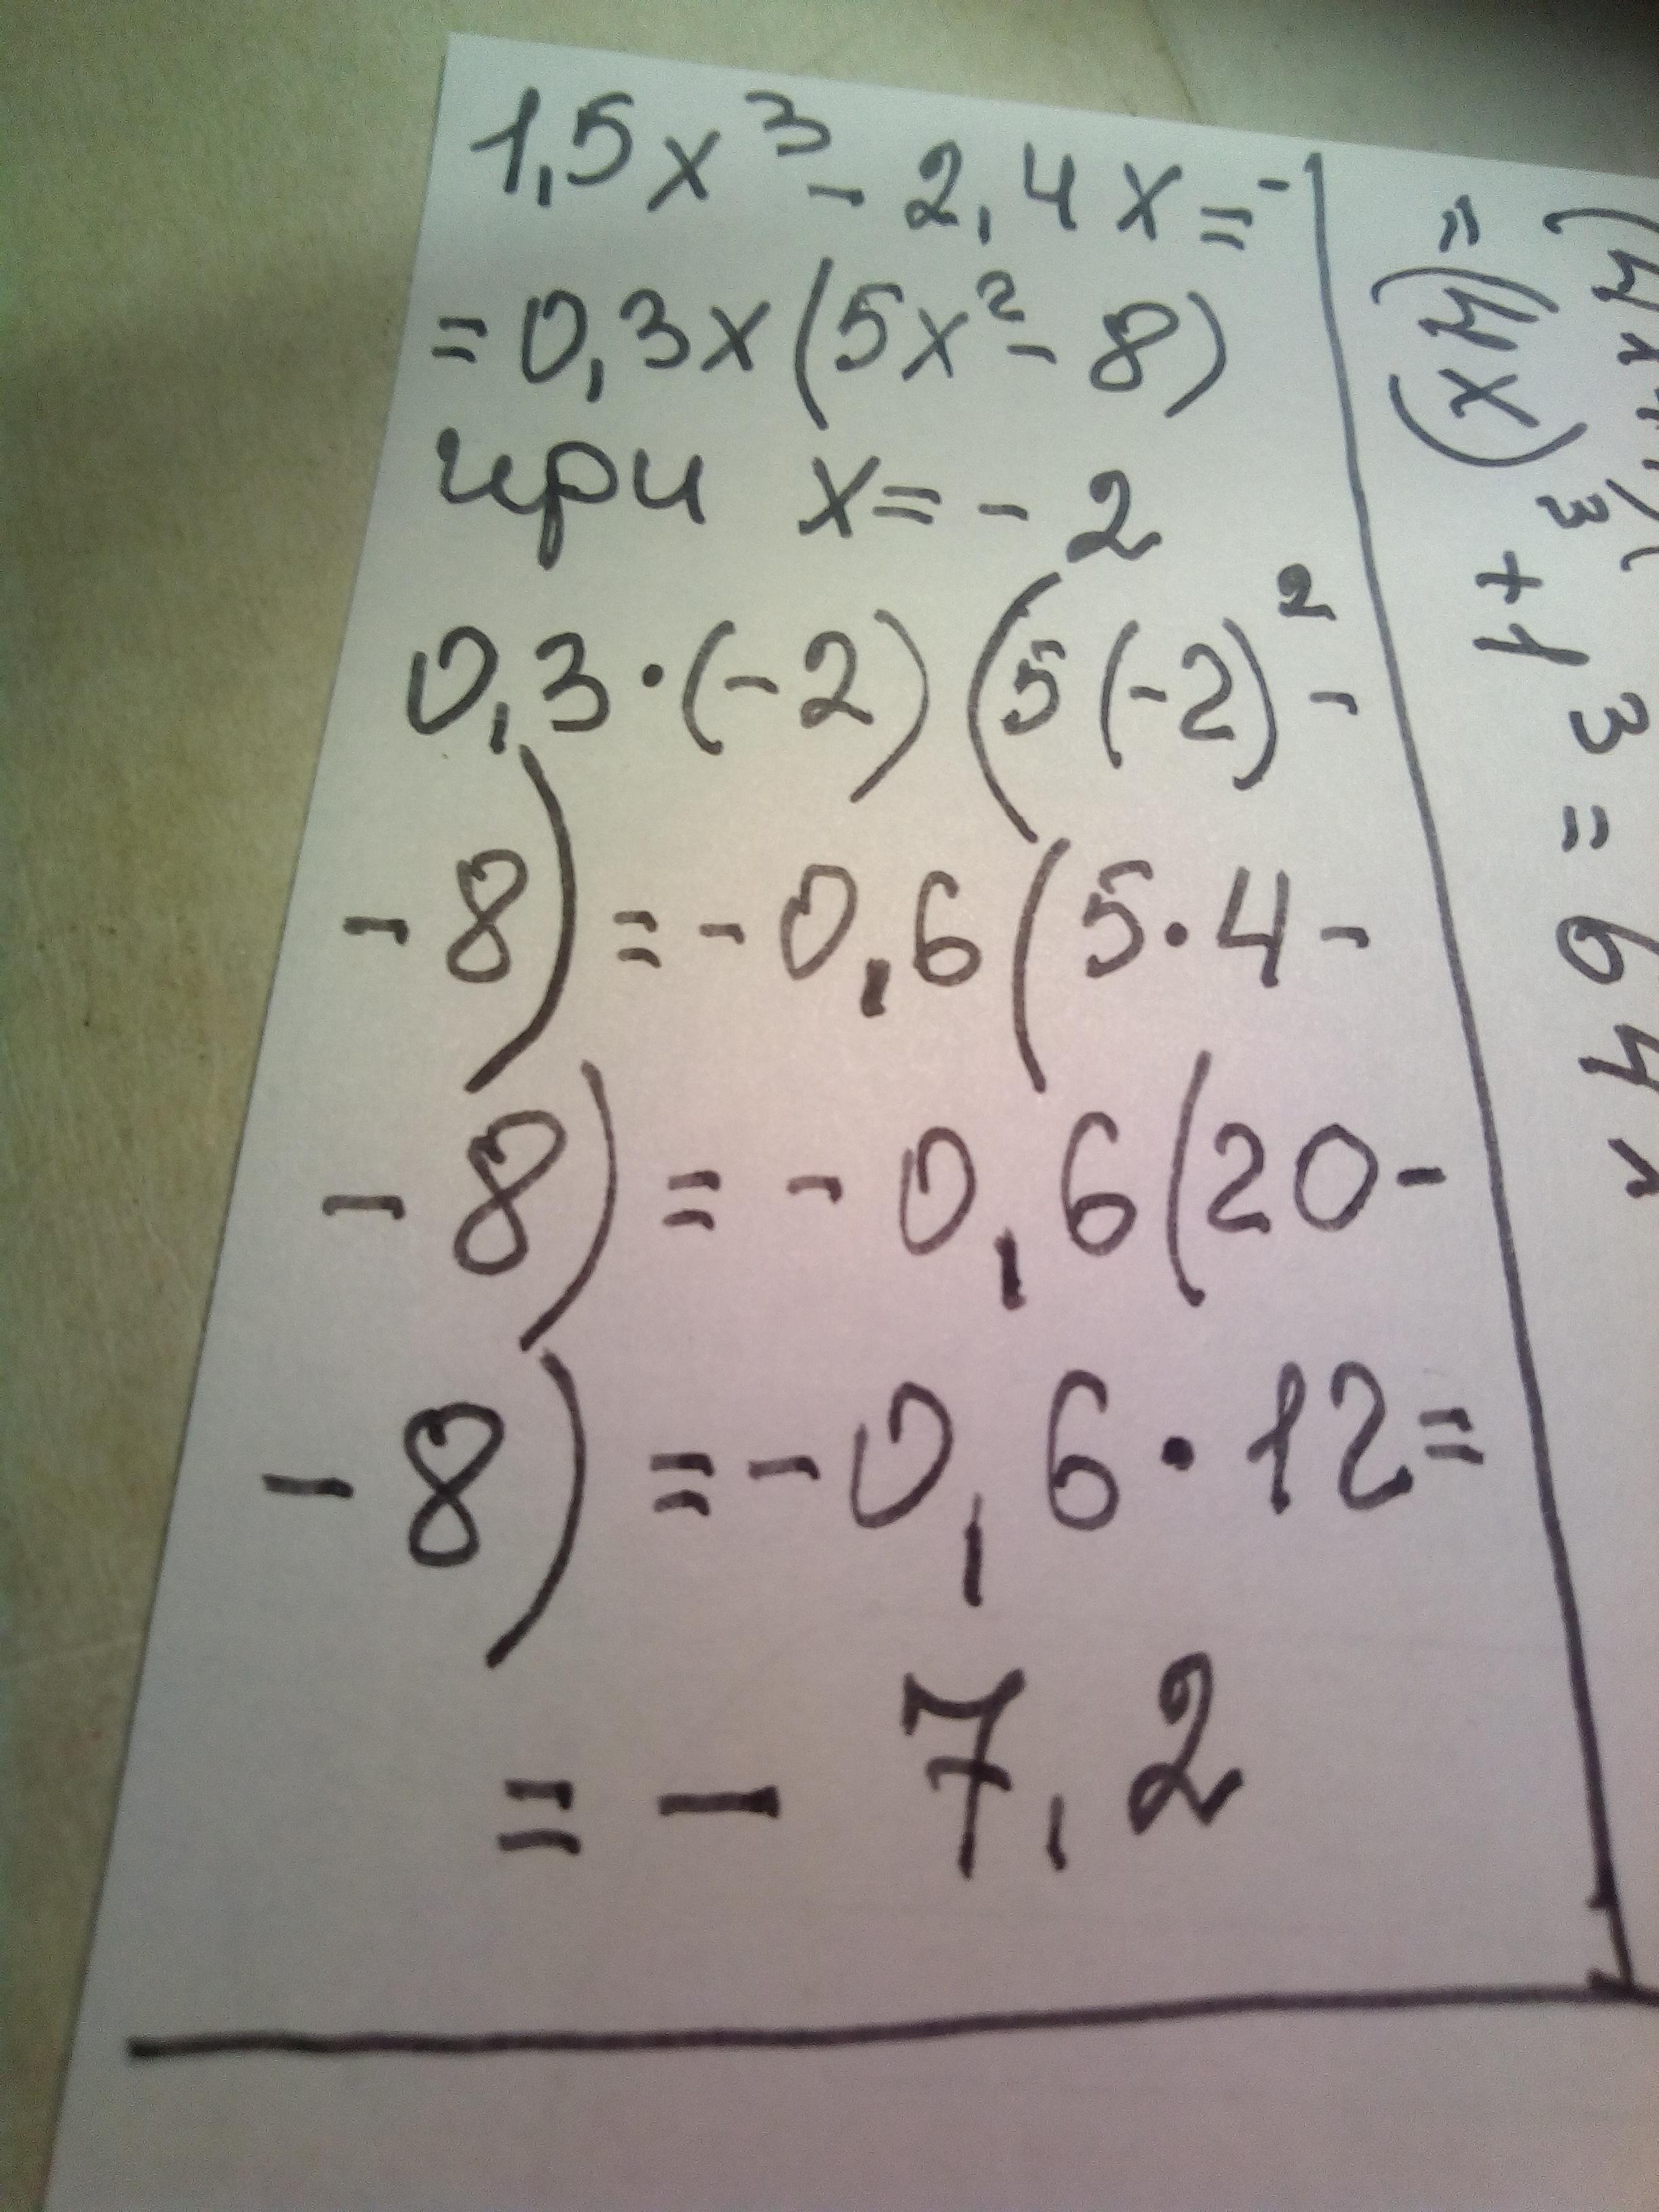 1,5x³ - 2,4x =
= 0,3x(5x² - 8)
при x = - 2
0,3 · (-2) (5(-2)² -
- 8) = - 0,6 (5 · 4 -
- 8) = - 0,6 (20 -
- 8) = - 0,6 · 12 =
= - 7,2
= (4x)³ + 1³ = 64x